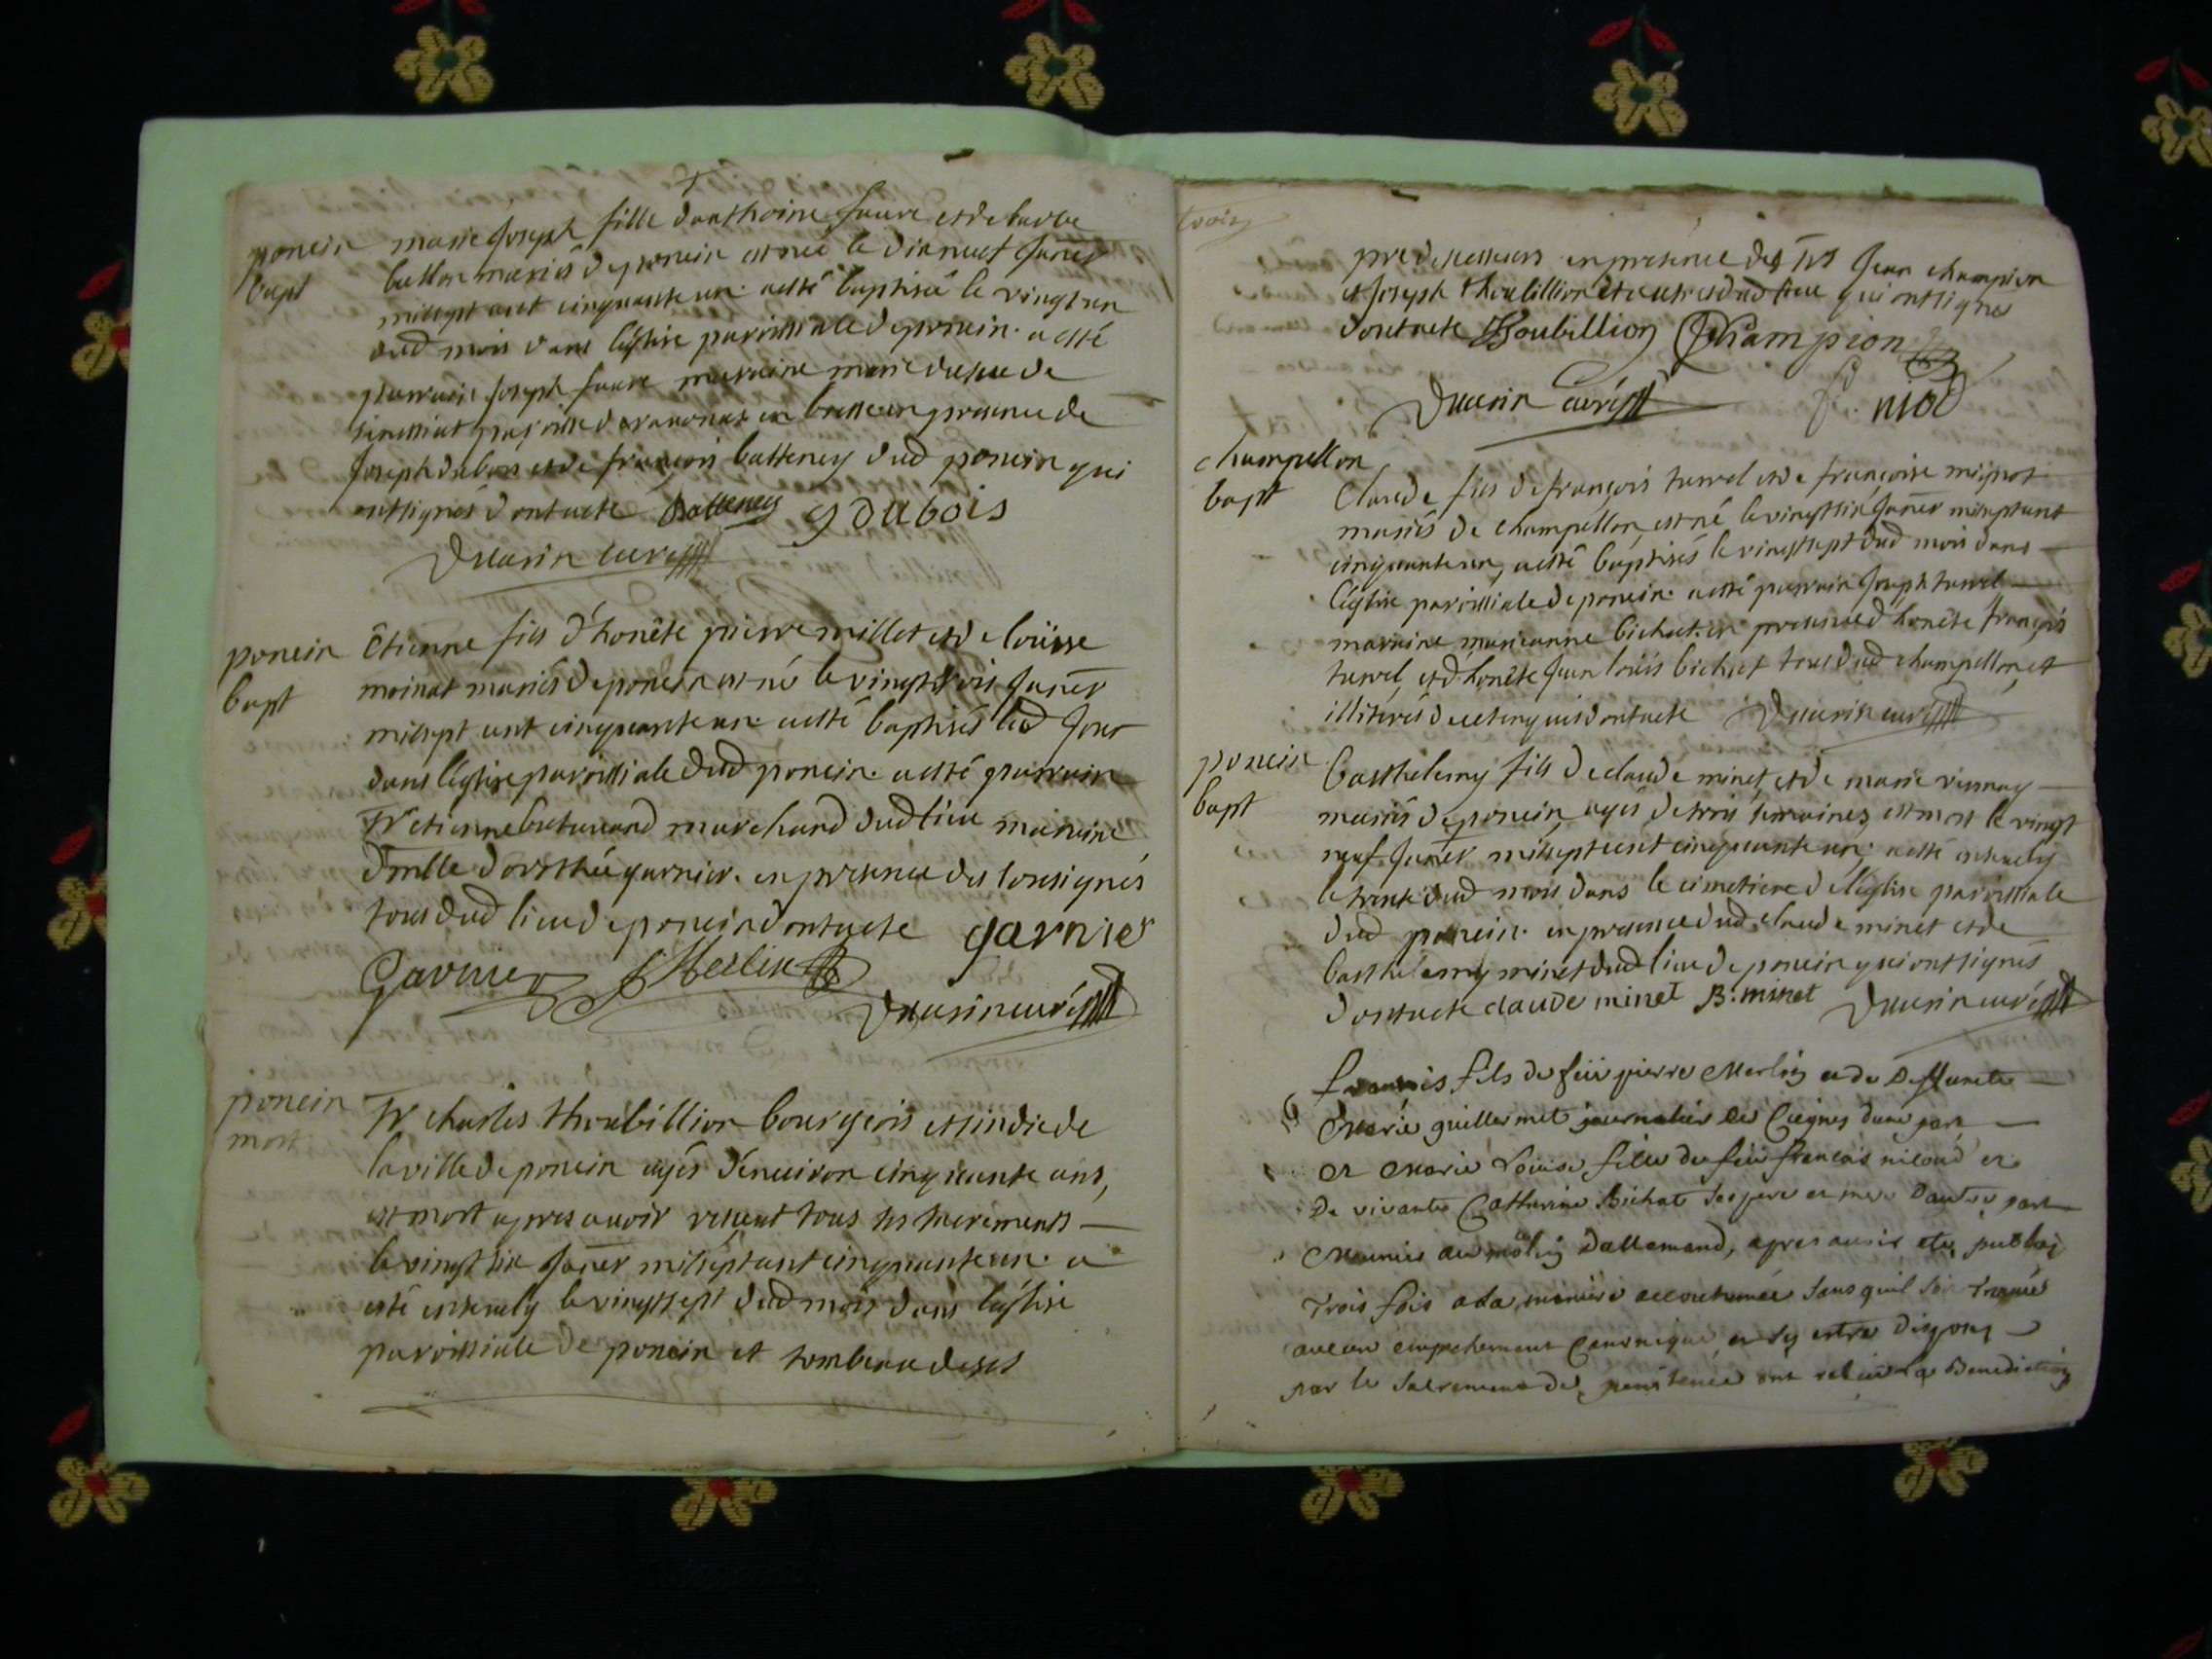 poncin
bapt
marie Joseph fille d'anthoine faure et de barbe
ballon mariés de poncin est née le dixneuf Janer
mil sept cent cinquante un. a esté baptisée le vingt un
dud mois dans léglise paroissiale de poncin. a esté
parrain Joseph faure marraine marie
paroisse de en bresse en presence de
Joseph dubois et de françois batteney dud poncin qui
ont signés dont acte Batteney J dubois
curé
poncin
bapt
Étienne fils d'honête pierre millet et de loüise
moinat mariés de poncin est né le vingt trois Janer
mil sept cent cinquante un. a esté baptisés led Jour
dans léglise paroissiale dud poncin. a esté parrain
Sr etienne marchand dud lieu maraine
dmlle dorothée garnier. en presence des sousignés
tous dud lieu de poncin dont acte garnier
Garnier Merlin
curé
poncin
mort
Sr charles thoubillion bourgeois et sindic de
la ville de poncin agés d'enuiron cinquante ans,
est mort apres auoir receut tous ses sacrements
le vingt six Janer mil sept cent cinquante un. a
esté enterely le vingt sept dud mois dans léglise
paroissiale de poncin et tombeau de ses
trois
predecesseurs en presence des srs Jean champion
et Joseph thoubillion et autres dud lieu qui ont signés
dont acte Thoubillion Champion
curé niod
champellon
bapt
Claude fils de françois tarvel et de françoise mignot
mariés de champellon, est né le vingt six Janer mil sept cent
cinquante un, a esté baptisés le vingt sept dud mois dans
léglise paroissiale de poncin. a esté parrain Joseph tarvel
marraine marianne bichat. en presence d'honête françois
tarvel, et d'honête Jean loüis bichat tous dud champellon, et
illiterés de ce enquis dont acte curé
poncin
bapt
barthelemy fils de claude minet, et de marie
mariés de poncin, agés de trois semaines, est mort le vingt
neuf Janer mil sept cent cinquante un; a esté enterely
le trente dud mois dans le cimetiere de léglise paroissiale
dud poncin. en presence dud claude minet et de
barthelemy minet dud lieu de poncin qui ont signés
dont acte claude minet B: minet curé
francois fils de feu pierre Merlin et de deffunte
Marie guillermet journalier de d'une part
et Marie Louise fille de feu francois et
de vivante Catherine Bichat ses pere et mere d'autre part
Meunier au molin dallemand, apres avoir eté publié
Trois fois a la maniere accoutumée sans quil soit trouvé
aucun empechement Canonique, et sy estre disposé
par le sacrement de penitence ont receu La Benediction